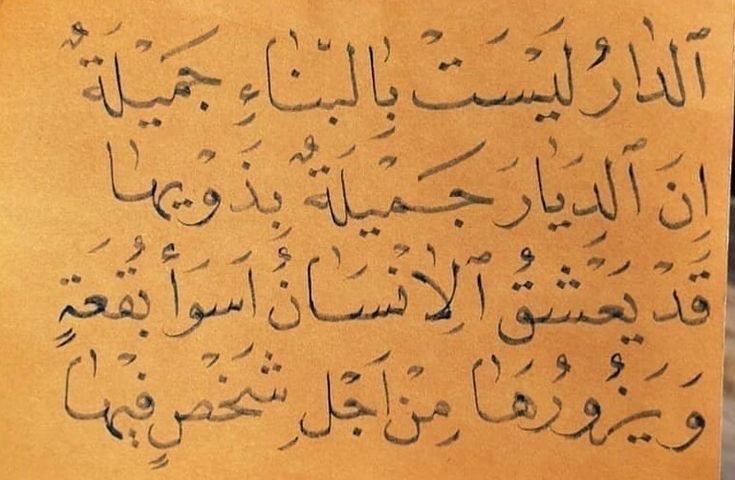 ٱلدَّارُ لَيْسَتْ بِالبِّنَاءِ جَمِيْلَةٌ
إِنَّ ٱلدِّيَارَ جَمِيْلَةٌ بِذَوِيهَا
قَدْ يَعْشَقُ ٱلِانْسَانُ اَسَوَأَ بُقْعَةٍ
وَيَزُورُهَا مِنْ اَجْلِ شَخْصٍ فِيهَا